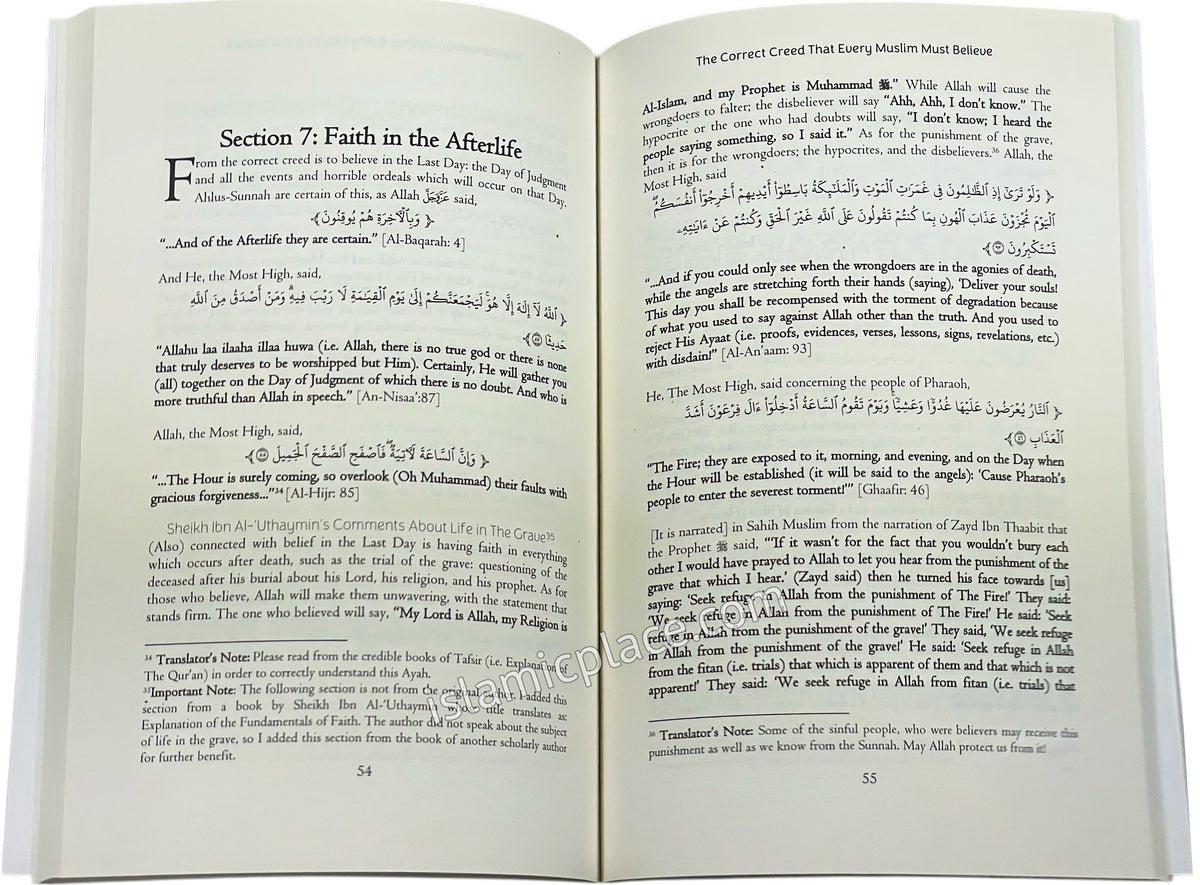 Section 7: Faith in the Afterlife
From the correct creed is to believe in the Last Day: the Day of Judgment
and all the events and horrible ordeals which will occur on that Day.
Ahlus-Sunnah are certain of this, as Allah عَزَّوَجَلَّ said,
﴿ وَبِالْآخِرَةِ هُمْ يُوقِنُونَ ﴾
“...And of the Afterlife they are certain.” [Al-Baqarah: 4]
And He, the Most High, said,
﴿ ٱللَّهُ لَآ إِلَٰهَ إِلَّا هُوَ ۚ لَيَجْمَعَنَّكُمْ إِلَىٰ يَوْمِ ٱلْقِيَٰمَةِ لَا رَيْبَ فِيهِ ۗ وَمَنْ أَصْدَقُ مِنَ ٱللَّهِ
حَدِيثًا ٨٧ ﴾
“Allahu laa ilaaha illaa huwa (i.e. Allah, there is no true god or there is none
that truly deserves to be worshipped but Him). Certainly, He will gather you
(all) together on the Day of Judgment of which there is no doubt. And who is
more truthful than Allah in speech.” [An-Nisaa’:87]
Allah, the Most High, said,
﴿ وَإِنَّ ٱلسَّاعَةَ لَآتِيَةٌ ۖ فَٱصْفَحِ ٱلصَّفْحَ ٱلْجَمِيلَ ٨٥ ﴾
“...The Hour is surely coming, so overlook (Oh Muhammad) their faults with
gracious forgiveness...”34 [Al-Hijr: 85]
Sheikh Ibn Al-’Uthaymin’s Comments About Life in The Grave35
(Also) connected with belief in the Last Day is having faith in everything
which occurs after death, such as the trial of the grave: questioning of the
deceased after his burial about his Lord, his religion, and his prophet. As for
those who believe, Allah will make them unwavering, with the statement that
stands firm. The one who believed will say, “My Lord is Allah, my Religion is
34 Translator’s Note: Please read from the credible books of Tafsir (i.e. Explanation of
The Qur’an) in order to correctly understand this Ayah.
35Important Note: The following section is not from the original author. I added this
section from a book by Sheikh Ibn Al-’Uthaymin title translates as:
Explanation of the Fundamentals of Faith. The author did not speak about the subject
of life in the grave, so I added this section from the book of another scholarly author
for further benefit.
54
The Correct Creed That Every Muslim Must Believe
Al-Islam, and my Prophet is Muhammad ﷺ.” While Allah will cause the
wrongdoers to falter; the disbeliever will say “Ahh, Ahh, I don’t know.” The
hypocrite or the one who had doubts will say, “I don’t know; I heard the
people saying something, so I said it.” As for the punishment of the grave,
then it is for the wrongdoers; the hypocrites, and the disbelievers.36 Allah, the
Most High, said
﴿ وَلَوْ تَرَىٰٓ إِذِ ٱلظَّٰلِمُونَ فِى غَمَرَٰتِ ٱلْمَوْتِ وَٱلْمَلَٰٓئِكَةُ بَاسِطُوٓا۟ أَيْدِيهِمْ أَخْرِجُوٓا۟ أَنفُسَكُمُ ۖ
ٱلْيَوْمَ تُجْزَوْنَ عَذَابَ ٱلْهُونِ بِمَا كُنتُمْ تَقُولُونَ عَلَى ٱللَّهِ غَيْرَ ٱلْحَقِّ وَكُنتُمْ عَنْ ءَايَٰتِهِۦ
تَسْتَكْبِرُونَ ٩٣ ﴾
“...And if you could only see when the wrongdoers are in the agonies of death,
while the angels are stretching forth their hands (saying), ‘Deliver your souls!
This day you shall be recompensed with the torment of degradation because
of what you used to say against Allah other than the truth. And you used to
reject His Ayaat (i.e. proofs, evidences, verses, lessons, signs, revelations, etc.)
with disdain!” [Al-An’aam: 93]
He, The Most High, said concerning the people of Pharaoh,
﴿ ٱلنَّارُ يُعْرَضُونَ عَلَيْهَا غُدُوًّا وَعَشِيًّا ۖ وَيَوْمَ تَقُومُ ٱلسَّاعَةُ أَدْخِلُوٓا۟ ءَالَ فِرْعَوْنَ أَشَدَّ
ٱلْعَذَابِ ٤٦ ﴾
“The Fire; they are exposed to it, morning, and evening, and on the Day when
the Hour will be established (it will be said to the angels): ‘Cause Pharaoh’s
people to enter the severest torment!’” [Ghaafir: 46]
[It is narrated] in Sahih Muslim from the narration of Zayd Ibn Thaabit that
the Prophet ﷺ said, “‘If it wasn’t for the fact that you wouldn’t bury each
other I would have prayed to Allah to let you hear from the punishment of the
grave that which I hear.’ (Zayd said) then he turned his face towards [us]
saying: ‘Seek refuge in Allah from the punishment of The Fire!’ They said:
‘We seek refuge in Allah from the punishment of The Fire!’ He said: ‘Seek
refuge in Allah from the punishment of the grave!’ They said, ‘We seek refuge
in Allah from the punishment of the grave!’ He said: ‘Seek refuge in Allah
from the fitan (i.e. trials) that which is apparent of them and that which is not
apparent!’ They said: ‘We seek refuge in Allah from fitan (i.e. trials) that
36 Translator’s Note: Some of the sinful people, who were believers may receive this
punishment as well as we know from the Sunnah. May Allah protect us from it!
55
islamicplace.com